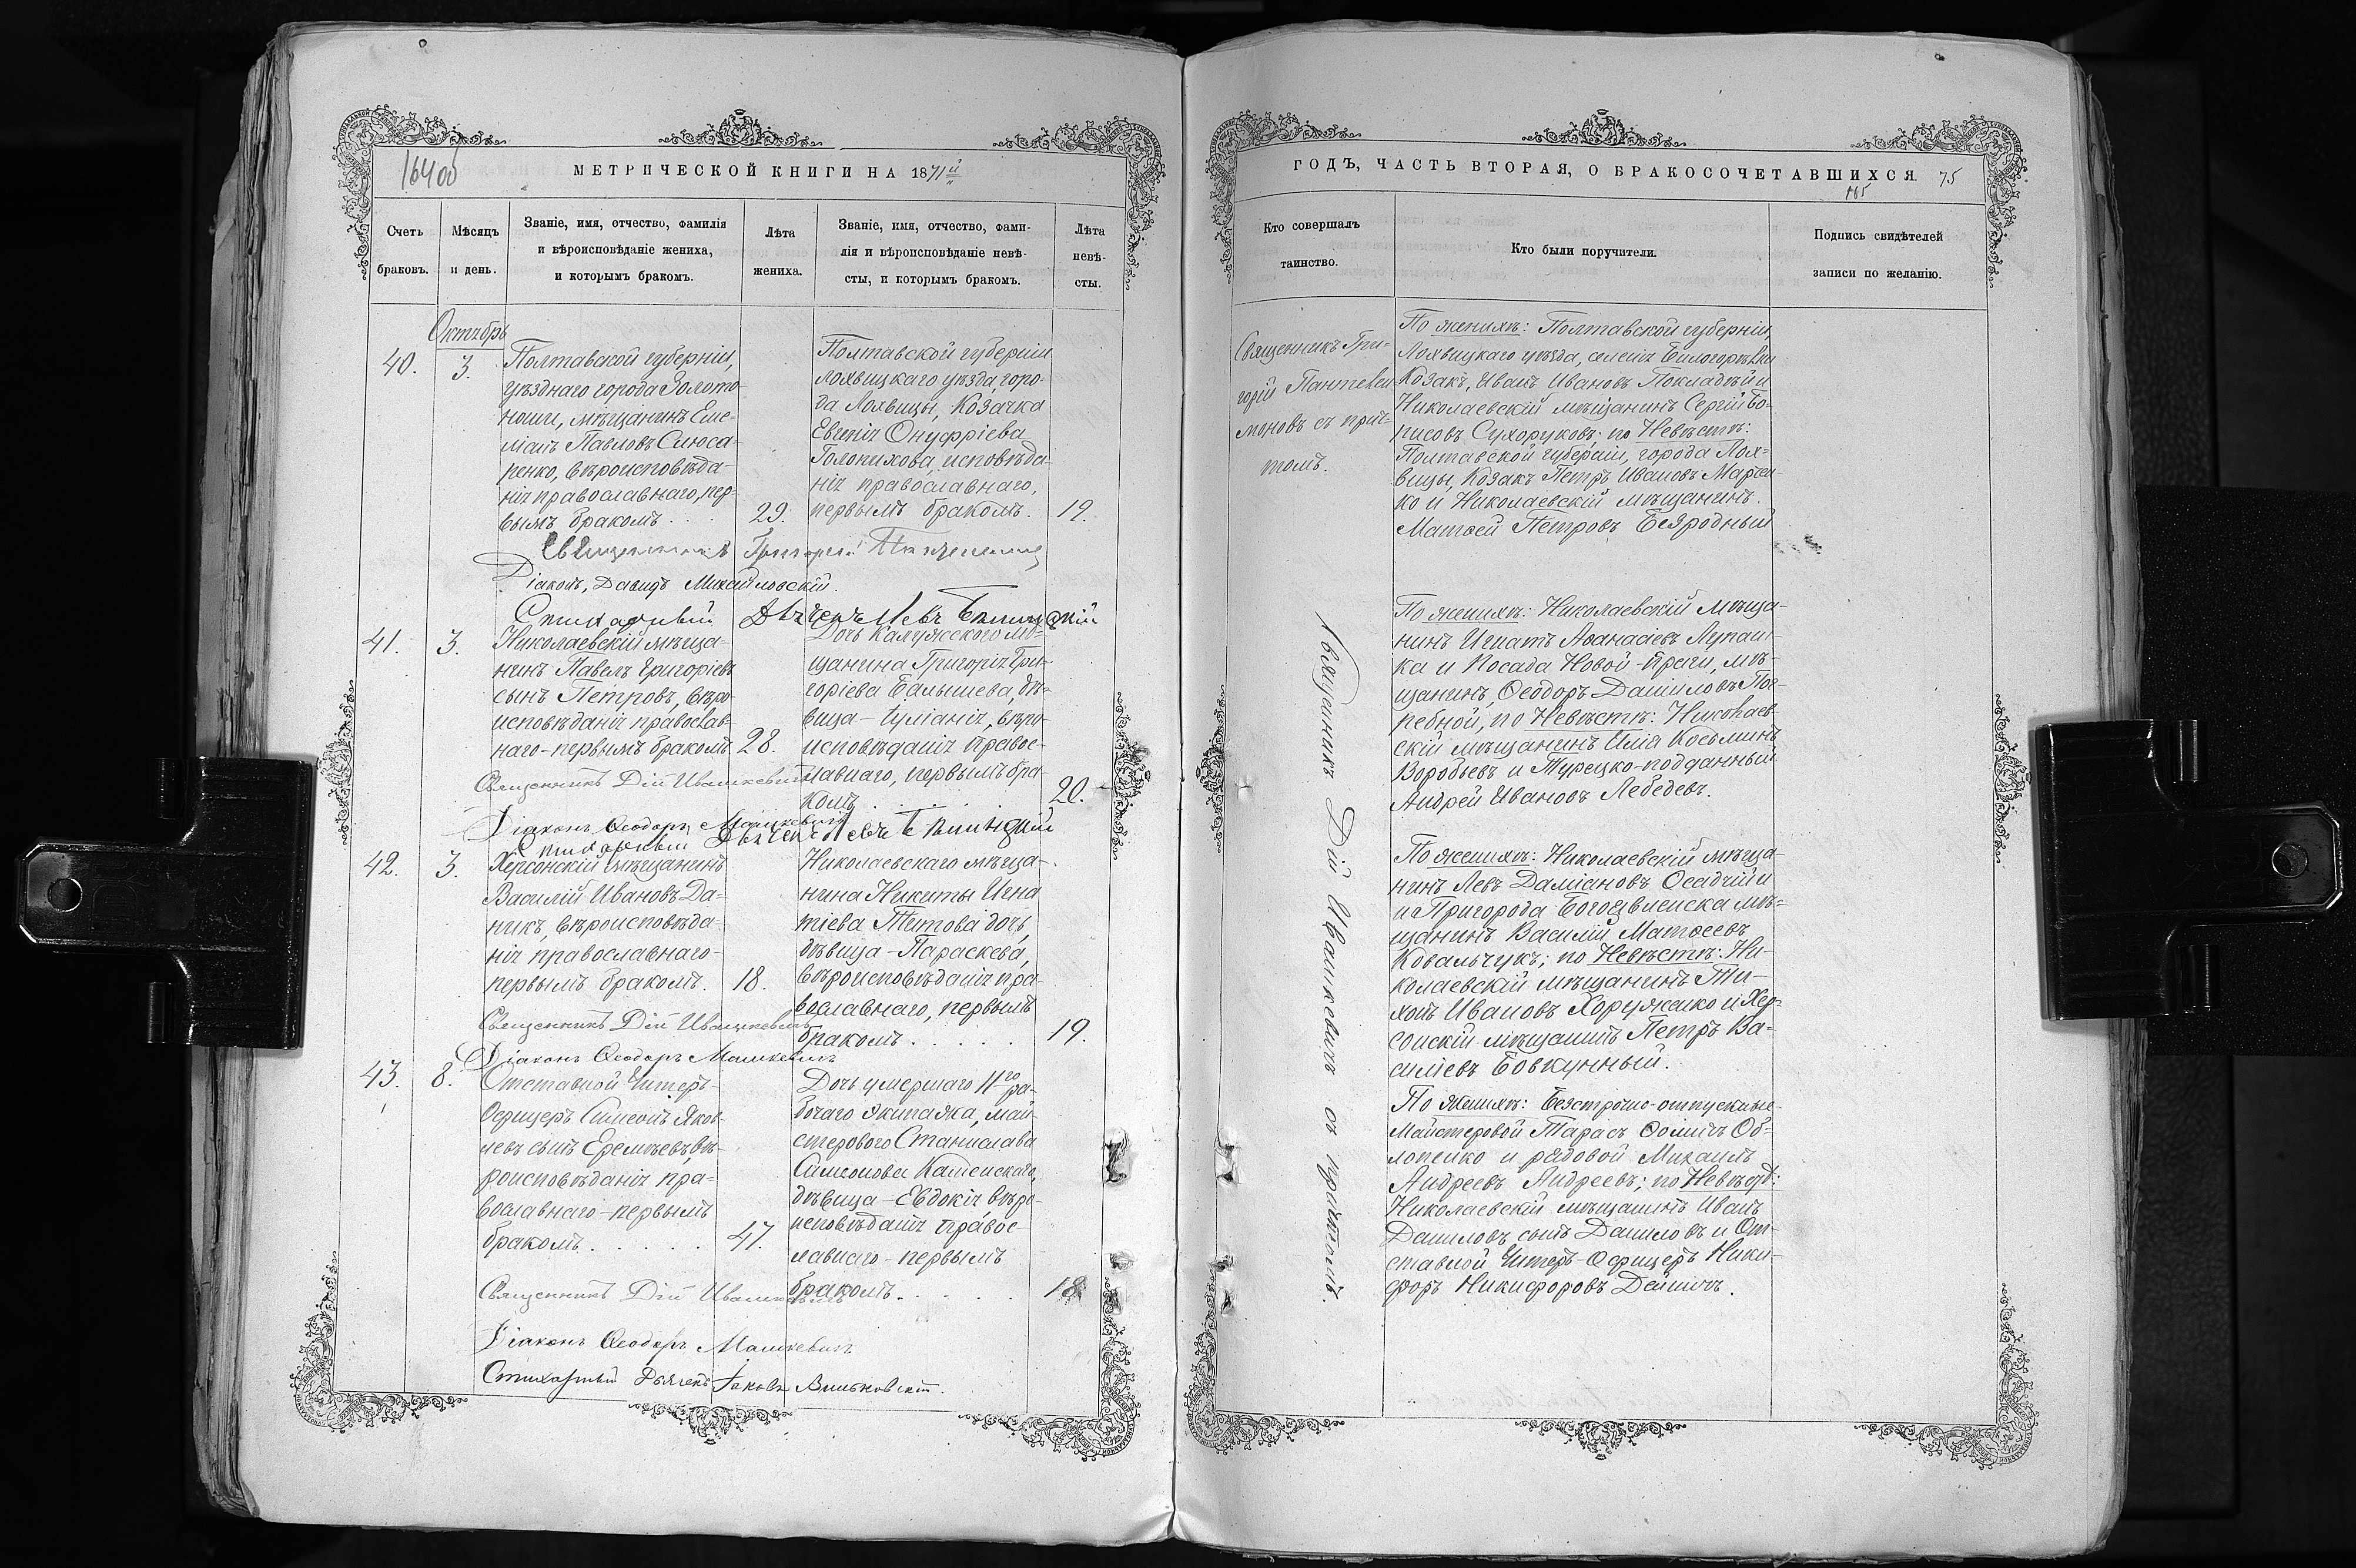 16400
МЕТРИЧЕСКОЙ КНИГИ НА 1871й
Счетъ браковъ.
Мѣсяцъ и день.
Званіе, имя, отчество, фамилія
и вѣроисповѣданіе жениха,
и которымъ бракомъ.
Лѣта жениха.
Званіе, имя, отчество, фами-
лія и вѣроисповѣданіе невѣ-
сты, и которымъ бракомъ.
Лѣта невѣ-
сты.
Октябрь
40.
3.
Полтавской губерніи,
уѣзднаго города Золото-
ноши, мѣщанинъ Еме-
ліанъ Павловъ Слюса-
ренко, вѣроисповѣда-
нія православнаго, пер-
вымъ бракомъ . . .
29.
Полтавской губерніи
Лохвицкаго уѣзда горо-
да Лохвицы, Козачка
Евгенія Онуфріева
Голопихова, исповѣда-
нія православнаго,
первымъ бракомъ.
19.
Священникъ Григорій
Діаконъ, Давидъ Михайловскій.
Стихарный Дьячекъ Левъ
41.
3.
Николаевскій мѣща-
нинъ Павелъ Григоріевъ
сынъ Петровъ, вѣро-
исповѣданія православ-
наго - первымъ бракомъ
28.
Дочь Калужского мѣ-
щанина Григорія Гри-
горіева Балышева, дѣ-
вица - Іуліанія, вѣро-
исповѣданія правос-
лавнаго, первымъ бра-
комъ . . . .
20.
Священникъ Дій Ивашкевичъ
Діаконъ Ѳеодоръ Машкевичъ
Стихарный Дьячекъ Левъ
42.
3.
Херсонскій мѣщанинъ
Василій Ивановъ Да-
никъ, вѣроисповѣда-
нія православнаго -
первымъ бракомъ.
18.
Николаевскаго мѣща-
нина Никиты Игна
тіева Титова дочь,
дѣвица - Параскева,
вѣроисповѣданія пра-
вославнаго, первымъ
бракомъ . . . . .
19.
Священникъ Дій Ивашкевичъ
Діаконъ Ѳеодоръ Машкевичъ
43.
8.
Отставной Унтеръ-
Офицеръ Симеонъ Яков-
левъ сынъ Еремѣевъ, вѣ-
роисповѣданія пра-
вославнаго - первымъ
бракомъ . . . . .
47.
Дочь умершаго 11го ра-
бочаго экипажа, май-
стерового Станислава
Симеонова Каменскаго,
дѣвица - Евдокія вѣро-
исповѣданія правос-
лавнаго - первымъ
бракомъ . . . . .
18
Священникъ Дій Ивашкевичъ
Діаконъ Ѳеодоръ Машкевичъ
Стихарный Дьячекъ Іаковъ
ГОДЪ, ЧАСТЬ ВТОРАЯ, О БРАКОСОЧЕТАВШИХСЯ.
75
165
Кто совершалъ
таинство.
Кто были поручители.
Подпись свидѣтелей
записи по желанію.
Священникъ Гри-
горій Пантелеи
моновъ съ прич-
томъ.
По женихѣ: Полтавской губерніи,
Лохвицкаго уѣзда, селенія Билогорѣлки
Козакъ, Иванъ Ивановъ Покладѣй и
Николаевскій мѣщанинъ Сергій Бо-
рисовъ Сухоруковъ; по Невѣстѣ:
Полтавской губерніи, города Лох-
вицы, Козакъ Петръ Ивановъ Марчен-
ко и Николаевскій мѣщанинъ
Матѳей Петровъ Безродный
Священникъ Дій Ивашкевичъ съ причтомъ.
По женихѣ: Николаевскій мѣща-
нинъ Игнатъ Аѳанасіевъ Лупаш-
ка и Посада Новой-Праги, мѣ-
щанинъ, Ѳеодоръ Даниловъ Пог-
ребной, по Невѣстѣ: Николаев-
скій мѣщанинъ Илія Косьминъ
Воробьевъ и Турецко-подданный
Андрей Ивановъ Лебедевъ.
По женихѣ: Николаевскій мѣща-
нинъ Левъ Даміановъ Осадчій и
и Пригорода Богоявленска мѣ-
щанинъ Василій Матѳеевъ
Ковальчукъ; по Невѣстѣ: Ни-
колаевскій мѣщанинъ Ти-
хонъ Ивановъ Хоруженко и Хер-
сонскій мѣщанинъ Петръ Ва-
силіевъ Бовкунный.
По женихѣ: Безсрочно-отпускные -
Майстеровой Тарасъ Ѳоминъ Об-
лопенко и рядовой Михаилъ
Андреевъ Андреевъ; по Невѣстѣ:
Николаевскій мѣщанинъ Иванъ
Даниловъ сынъ Даниловъ и От-
ставной Унтеръ-Офицеръ Ники-
форъ Никифоровъ